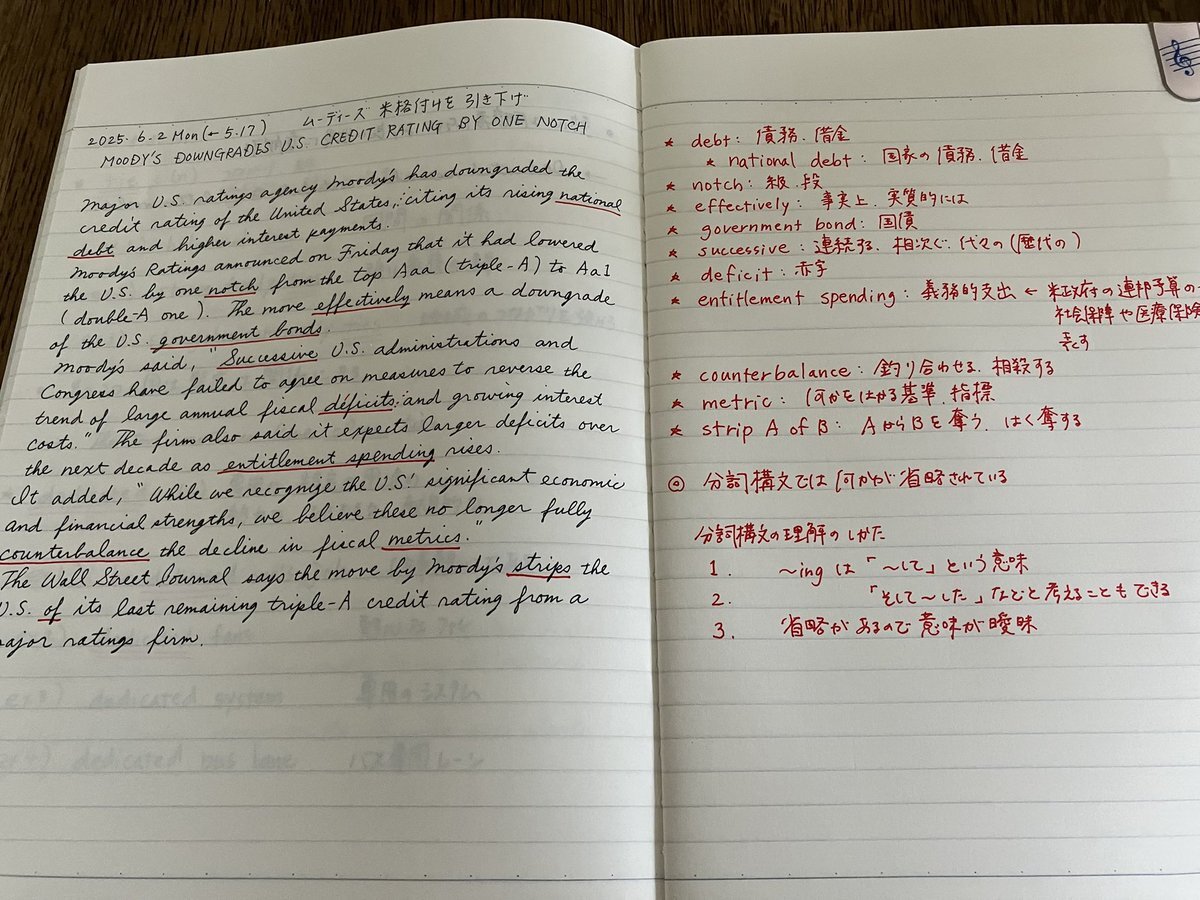 2025. 6. 2 Mon (← 5.17) ムーディーズ 米格付けを引き下げ
MOODY'S DOWNGRADES U.S. CREDIT RATING BY ONE NOTCH
Major U.S. ratings agency Moody's has downgraded the
credit rating of the United States, citing its rising national
debt and higher interest payments.
Moody's Ratings announced on Friday that it had lowered
the U.S. by one notch from the top Aaa (triple-A) to Aa1
(double-A one). The move effectively means a downgrade
of the U.S. government bonds.
Moody's said, "Successive U.S. administrations and
Congress have failed to agree on measures to reverse the
trend of large annual fiscal deficits and growing interest
costs." The firm also said it expects larger deficits over
the next decade as entitlement spending rises.
It added, "While we recognize the U.S.' significant economic
and financial strengths, we believe these no longer fully
counterbalance the decline in fiscal metrics."
The Wall Street Journal says the move by Moody's strips the
U.S. of its last remaining triple-A credit rating from a
ajor ratings firm.
dedicated system 専用のシステム
dedicated bus lane バス専用レーン
* debt: 債務、借金
* national debt: 国家の債務、借金
* notch: 級、段
* effectively: 事実上、実質的には
* government bond: 国債
* successive: 連続する、相次ぐ、代々の(歴代の)
* deficit: 赤字
* entitlement spending: 義務的支出 ← 米政府の連邦予算の
社会保障や医療保険
表す
* counterbalance: 釣り合わせる、相殺する
* metric: 何かをはかる基準、指標
* strip A of B: AからBを奪う、はく奪する
◎ 分詞構文では何かが省略されている
分詞構文の理解のしかた
1. ~ing は「~して」という意味
2. 「そして~した」などと考えることもできる
3. 省略があるので意味が曖昧